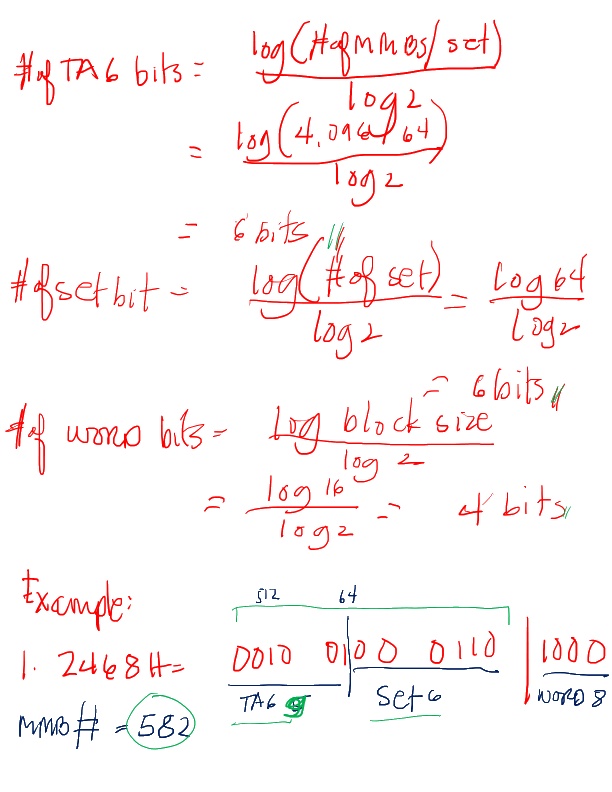 # of TAG bits = log(# of MMBs/set) / log 2
= log(4,096/64) / log 2
= 6 bits //
# of set bit = log(# of set) / log 2 = log 64 / log 2
= 6 bits //
# of WORD bits = Log block size / log 2
= log 16 / log 2 = 4 bits //
Example:
512 64
1. 2468H = 0010 0100 0110 1000
TAG 9 Set 6 WORD 8
MMB # = 582